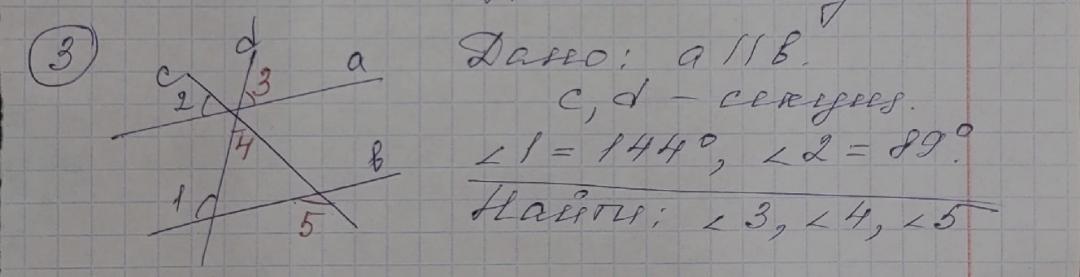 3
d
c
a
3
2
4
b
1
5
Дано: a || b.
c, d – секущая.
∠1 = 144°, ∠2 = 89°.
Найти: ∠3, ∠4, ∠5